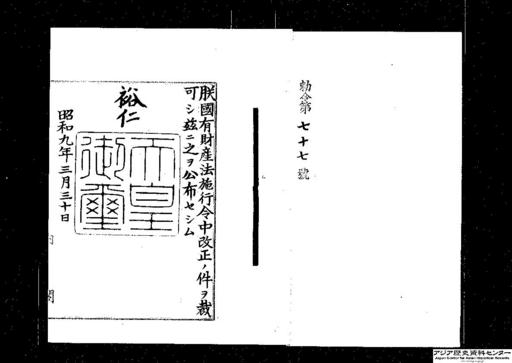 勅令第七十七號
朕國有財産法施行令中改正ノ件ヲ裁
可シ玆ニ之ヲ公布セシム
裕仁
天皇
御璽
昭和九年三月三十日
内閣
アジア歴史資料センター
Japan Center for Asian Historical Records